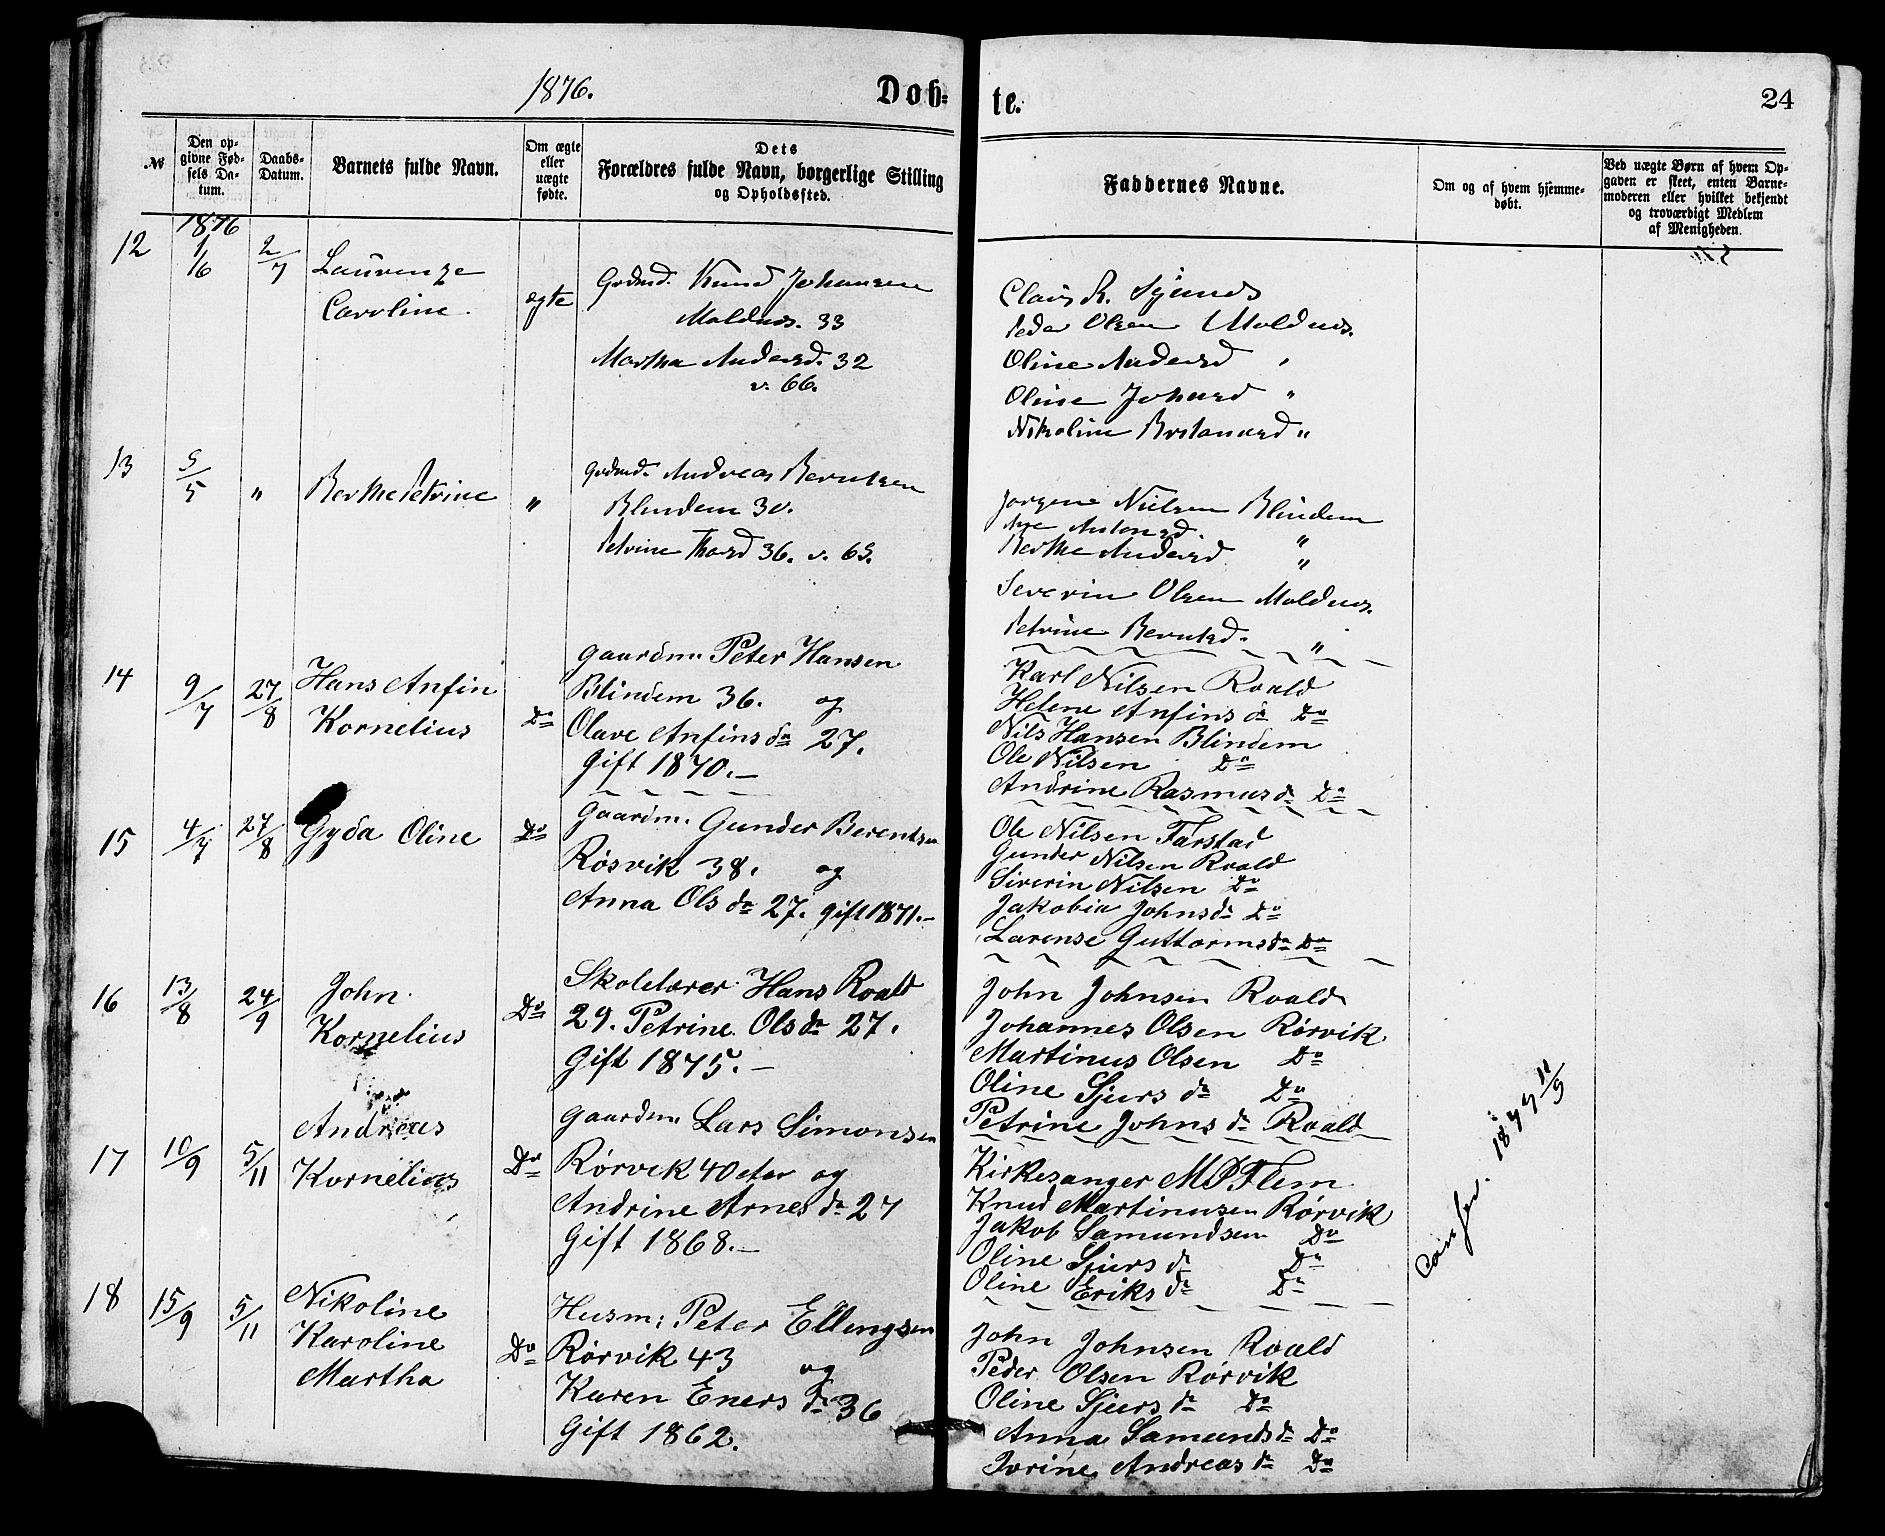 1876.
Døb-
te.
24
№
Den op-
givne Fød-
sels Da-
tum.
Daabs-
Datum.
Barnets fulde Navn.
Om ægte
eller
uægte
fødte.
Dets
Forældres fulde Navn, borgerlige Stilling
og Opholdssted.
Faddernes Navne.
Om og af hvem hjemme-
døbt.
Ved uægte Børn af hvem Op-
gaven er skeet, enten Barne-
moderen eller hvilket bekjendt
og troværdigt Medlem
af Menigheden.
1876
12
1/6
2/7
Laurenze
Caroline
ægte
Grdmd. Knud Johansen
Moldnes. 33
Martha Andersd. 32
v. 66.
Claus R. Sjunds
Peder Olsen Moldnes.
Oline Andersd "
Oline Johnsd "
Nikoline "
13
5/5
"
Berthe Petrine
"
Grdmd. Andreas Berntsen
Blindem 30.
Petrine Thorsd 36. v. 65.
Jørgen Nielsen Blindem
Ane Antonsd. "
Berthe Andersd "
Severin Olsen Moldnes.
Petrine Berntsd. "
14
9/7
27/8
Hans Anfin
Kornelius
Do
Gaardm. Peter Hansen
Blindem 36. og
Olave Anfins dr 27.
Gift 1870.—
Karl Nilsen Roald
Helene Anfins dr Do
Nils Hansen Blindem
Ole Nilsen Do
Andrine Rasmus dr Do
15
4/7
27/8
Gyda Oline
Do
Gaardm. Gunder Berentsen
Røsvik 38. og
Anna Ols dr 27. gift 1871.—
Ole Nilsen Farstad
Gunder Nilsen Roald
Siverin Nilsen Do
Jakobia Johns dr Do
Larense Guttorms dr Do
16
13/8
24/9
John
Kornelius
Do
Skolelærer Hans Roald
29. Petrine Ols dr 27.
Gift 1875.—
John Johnsen Roald
Johannes Olsen Rørvik
Martinus Olsen Do
Oline Sjurs dr Do
Petrine Johns dr Roald
17
10/9
5/11
Andreas
Kornelius
Do
Gaardm. Lars Simonsen
Rørvik 40 og
Andrine Arnes dr 27
Gift 1868.—
Kirkesanger M P Flem
Knud Martinusen Rørvik
Jakob Samundsen Do
Oline Sjurs dr Do
Oline Eriks dr Do
18
15/9
5/11
Nikoline
Karoline
Martha
Do
Husm: Peter Ellingsen
Rørvik 43 og
Karen Eners dr 36
Gift 1862.
John Johnsen Roald
Peder Olsen Rørvik
Oline Sjurs dr Do
Anna Samunds dr Do
Andreas dr Do